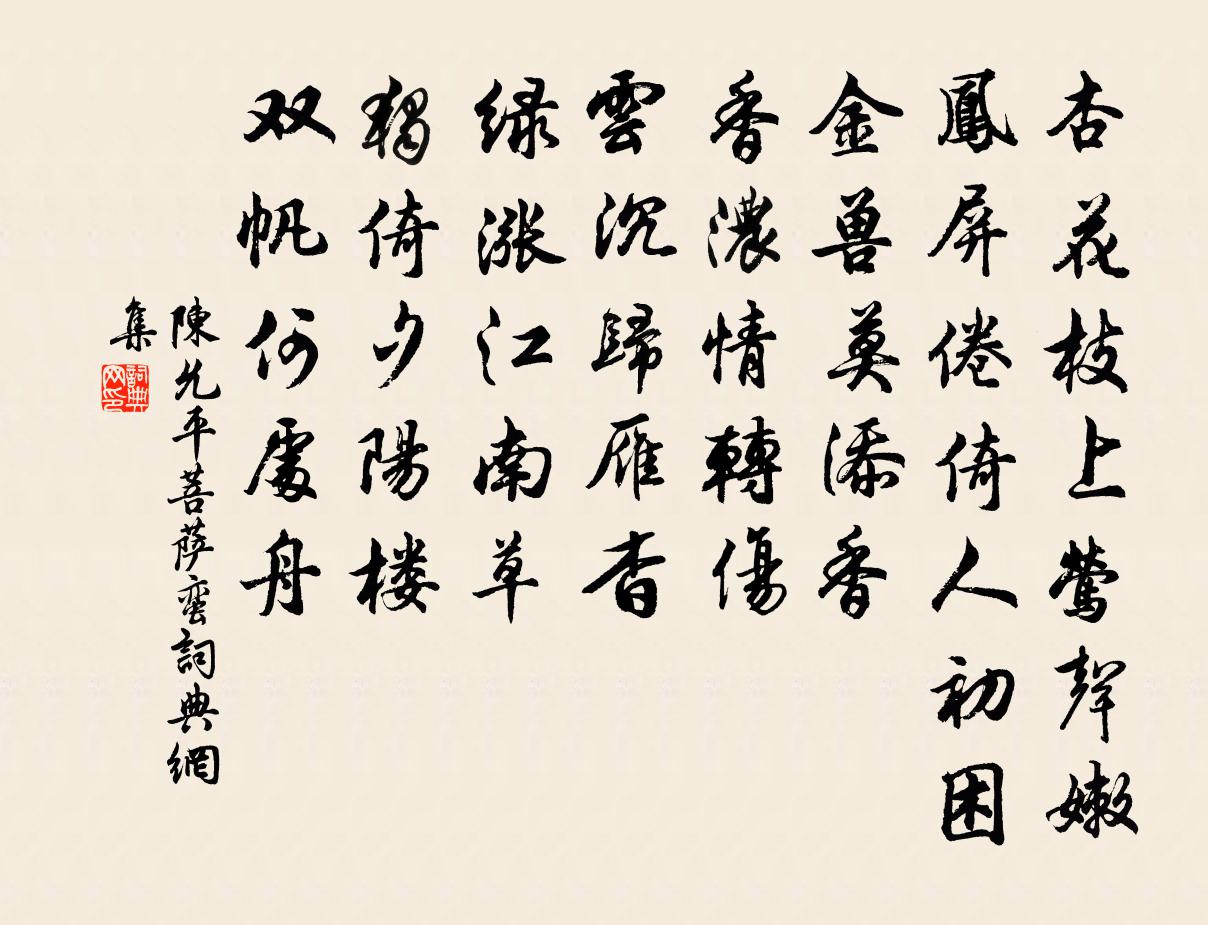 杏花枝上鶯聲嫩
鳳屏倦倚人初困
金兽莫添香
香濃情轉傷
雲沉歸雁杳
绿漲江南草
獨倚夕陽楼
双帆何處舟
陳允平菩萨蛮詞典網
集
詞典网印